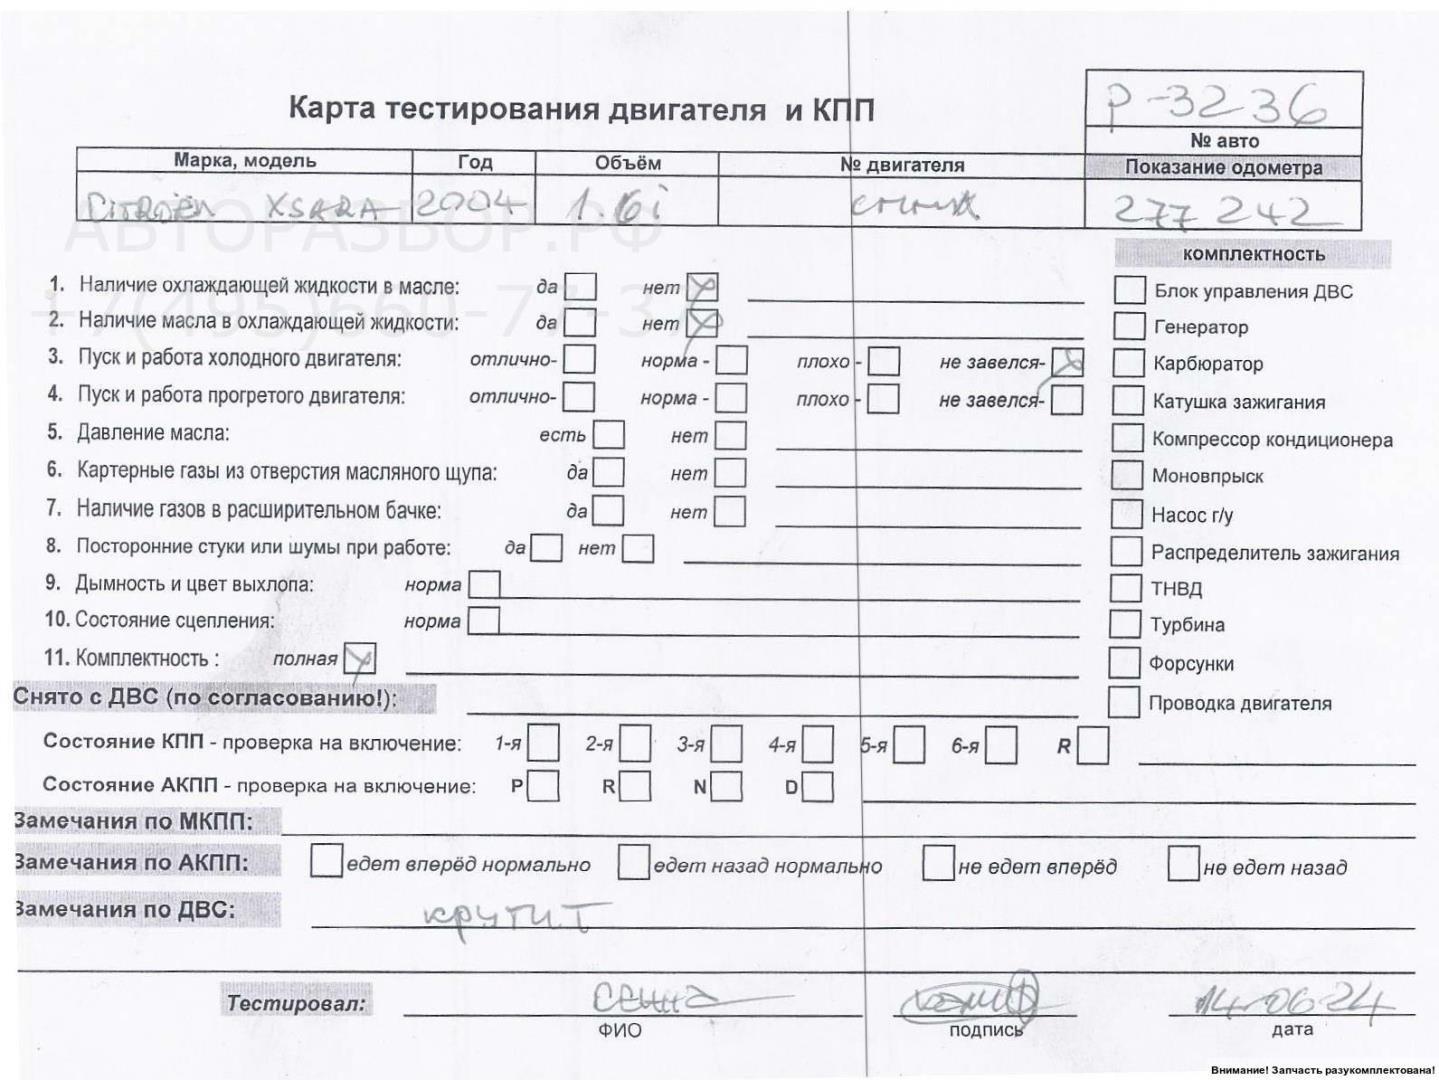 Р-3236
Карта тестирования двигателя и КПП
№ авто
Марка, модель Год Объём № двигателя Показание одометра
CITROËN XSARA 2004 1.6i 277 242
АВТОРАЗБОР.РФ
комплектность
1. Наличие охлаждающей жидкости в масле: да нет Блок управления ДВС
+7(495)660-77-37
2. Наличие масла в охлаждающей жидкости: да нет Генератор
3. Пуск и работа холодного двигателя: отлично- норма - плохо - не завелся- Карбюратор
4. Пуск и работа прогретого двигателя: отлично- норма - плохо - не завелся- Катушка зажигания
5. Давление масла: есть нет Компрессор кондиционера
6. Картерные газы из отверстия масляного щупа: да нет Моновпрыск
7. Наличие газов в расширительном бачке: да нет Насос г/у
8. Посторонние стуки или шумы при работе: да нет Распределитель зажигания
9. Дымность и цвет выхлопа: норма ТНВД
10. Состояние сцепления: норма Турбина
11. Комплектность : полная Форсунки
Снято с ДВС (по согласованию!): Проводка двигателя
Состояние КПП - проверка на включение: 1-я 2-я 3-я 4-я 5-я 6-я R
Состояние АКПП - проверка на включение: P R N D
Замечания по МКПП:
Замечания по АКПП: едет вперёд нормально едет назад нормально не едет вперёд не едет назад
Замечания по ДВС: крутит
Тестировал: 14.06.24
ФИО подпись дата
Внимание! Запчасть разукомплектована!